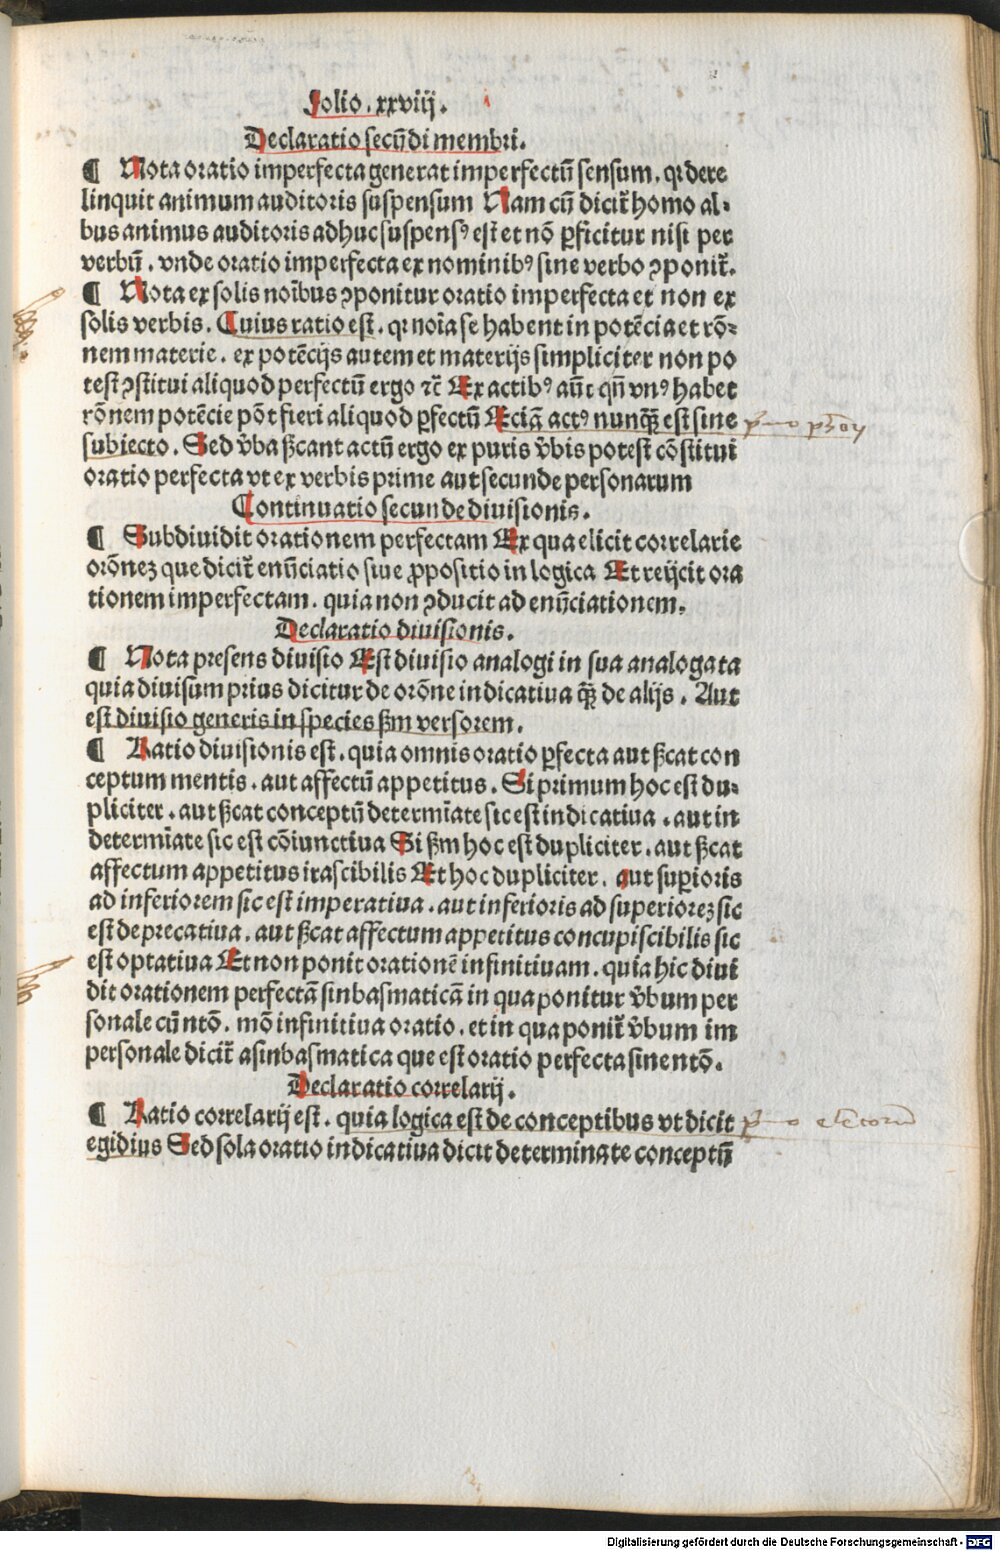 Folio. xxviij.
Declaratio secūdi membri.
¶ Nota oratio imperfecta generat imperfectū sensum. qꝛ dere
linquit animum auditoris suspensum Nam cū dicit̄ homo al⸗
bus animus auditoris adhuc suspensꝰ est et nō ꝑficitur nisi per
verbū. vnde oratio imperfecta ex nominibꝰ sine verbo ꝯponit̄.
¶ Nota ex solis noībus ꝯponitur oratio imperfecta et non ex
solis verbis. Cuius ratio est. qꝛ noīa se habent in potēcia et rō⸗
nem materie. ex potēcijs autem et materijs simpliciter non po
test ꝯstitui aliquod perfectū ergo ⁊c̄ Ex actibꝰ aūt qn̄ vnꝰ habet
rōnem potēcie pōt fieri aliquod ꝑfectū Eciā actꝰ nunqꝫ est sine
subiecto. Sed v̄ba ſꝫcant actū ergo ex puris v̄bis potest cōstitui
oratio perfecta vt ex verbis prime aut secunde personarum
Continuatio secunde diuisionis.
¶ Subdiuidit orationem perfectam Ex qua elicit correlarie
orōnez que dicit̄ enūciatio siue ꝓpositio in logica Et reijcit ora
tionem imperfectam. quia non ꝯducit ad enūciationem.
Declaratio diuisionis.
¶ Nota presens diuisio Est diuisio analogi in sua analogata
quia diuisum prius dicitur de orōne indicatiua qꝫ de alijs. Aut
est diuisio generis in species ſꝫm versorem.
¶ Ratio diuisionis est. quia omnis oratio ꝑfecta aut ſꝫcat con
ceptum mentis. aut affectū appetitus. Si primum hoc est du⸗
pliciter. aut ſꝫcat conceptū determīate sic est indicatiua. aut in
determīate sic est cōiunctiua Si ſꝫm hoc est dupliciter. aut ſꝫcat
affectum appetitus irascibilis Et hoc dupliciter. aut suꝑioris
ad inferiorem sic est imperatiua. aut inferioris ad superiorez sic
est deprecatiua. aut ſꝫcat affectum appetitus concupiscibilis sic
est optatiua Et non ponit orationē infinitiuam. quia hic diui
dit orationem perfectā sinbasmaticā in qua ponitur v̄bum per
sonale cū ntō. mō infinitiua oratio. et in qua ponit̄ v̄bum im
personale dicit̄ asinbasmatica que est oratio perfecta sine ntō.
Declaratio correlarij.
¶ Ratio correlarij est. quia logica est de conceptibus vt dicit
egidius Sed sola oratio indicatiua dicit determinate conceptū
Digitalisierung gefördert durch die Deutsche Forschungsgemeinschaft - DFG